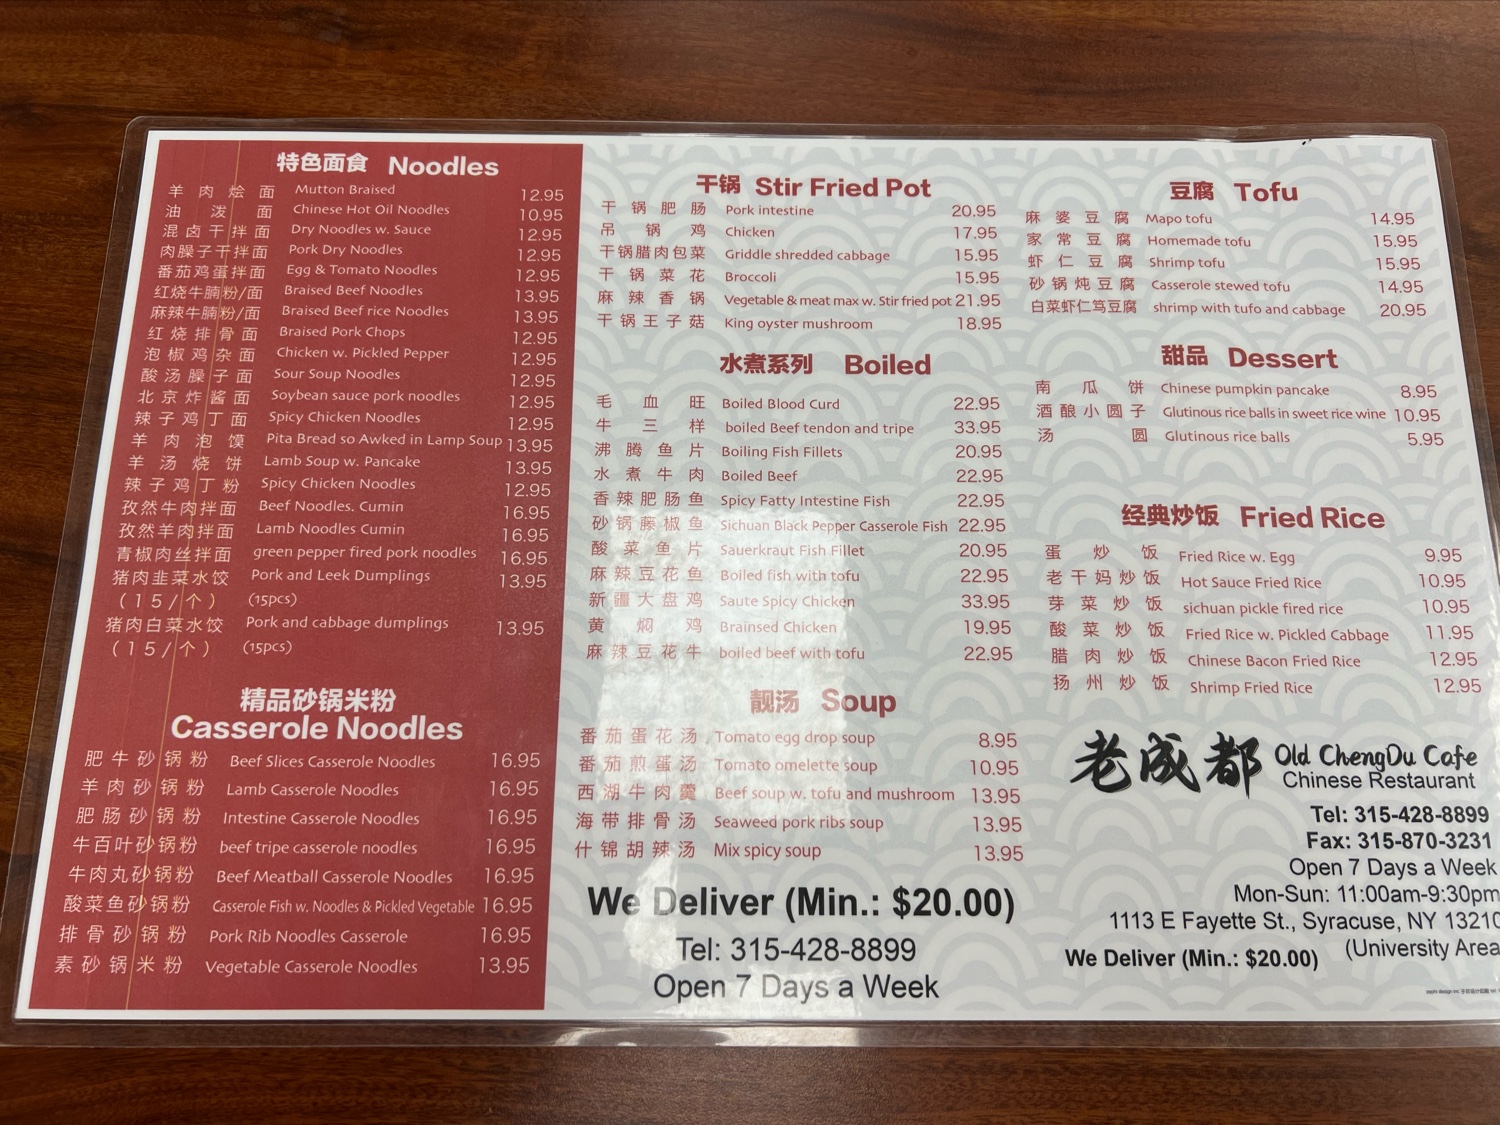 特色面食 Noodles
羊肉烩面 Mutton Braised 12.95
油泼面 Chinese Hot Oil Noodles 10.95
混卤干拌面 Dry Noodles w. Sauce 12.95
肉臊子干拌面 Pork Dry Noodles 12.95
番茄鸡蛋拌面 Egg & Tomato Noodles 12.95
红烧牛腩粉/面 Braised Beef Noodles 13.95
麻辣牛腩粉/面 Braised Beef rice Noodles 13.95
红烧排骨面 Braised Pork Chops 12.95
泡椒鸡杂面 Chicken w. Pickled Pepper 12.95
酸汤臊子面 Sour Soup Noodles 12.95
北京炸酱面 Soybean sauce pork noodles 12.95
辣子鸡丁面 Spicy Chicken Noodles 12.95
羊肉泡馍 Pita Bread so Awked in Lamp Soup 13.95
羊汤烧饼 Lamb Soup w. Pancake 13.95
辣子鸡丁粉 Spicy Chicken Noodles 12.95
孜然牛肉拌面 Beef Noodles. Cumin 16.95
孜然羊肉拌面 Lamb Noodles Cumin 16.95
青椒肉丝拌面 green pepper fired pork noodles 16.95
猪肉韭菜水饺 Pork and Leek Dumplings 13.95
(15/个) (15pcs)
猪肉白菜水饺 Pork and cabbage dumplings 13.95
(15/个) (15pcs)
精品砂锅米粉
Casserole Noodles
肥牛砂锅粉 Beef Slices Casserole Noodles 16.95
羊肉砂锅粉 Lamb Casserole Noodles 16.95
肥肠砂锅粉 Intestine Casserole Noodles 16.95
牛百叶砂锅粉 beef tripe casserole noodles 16.95
牛肉丸砂锅粉 Beef Meatball Casserole Noodles 16.95
酸菜鱼砂锅粉 Casserole Fish w. Noodles & Pickled Vegetable 16.95
排骨砂锅粉 Pork Rib Noodles Casserole 16.95
素砂锅米粉 Vegetable Casserole Noodles 13.95
干锅 Stir Fried Pot
干锅肥肠 Pork intestine 20.95
吊锅鸡 Chicken 17.95
干锅腊肉包菜 Griddle shredded cabbage 15.95
干锅菜花 Broccoli 15.95
麻辣香锅 Vegetable & meat max w. Stir fried pot 21.95
干锅王子菇 King oyster mushroom 18.95
水煮系列 Boiled
毛血旺 Boiled Blood Curd 22.95
牛三样 boiled Beef tendon and tripe 33.95
沸腾鱼片 Boiling Fish Fillets 20.95
水煮牛肉 Boiled Beef 22.95
香辣肥肠鱼 Spicy Fatty Intestine Fish 22.95
砂锅藤椒鱼 Sichuan Black Pepper Casserole Fish 22.95
酸菜鱼片 Sauerkraut Fish Fillet 20.95
麻辣豆花鱼 Boiled fish with tofu 22.95
新疆大盘鸡 Saute Spicy Chicken 33.95
黄焖鸡 Brainsed Chicken 19.95
麻辣豆花牛 boiled beef with tofu 22.95
靓汤 Soup
番茄蛋花汤 Tomato egg drop soup 8.95
番茄煎蛋汤 Tomato omelette soup 10.95
西湖牛肉羹 Beef soup w. tofu and mushroom 13.95
海带排骨汤 Seaweed pork ribs soup 13.95
什锦胡辣汤 Mix spicy soup 13.95
We Deliver (Min.: $20.00)
Tel: 315-428-8899
Open 7 Days a Week
豆腐 Tofu
麻婆豆腐 Mapo tofu 14.95
家常豆腐 Homemade tofu 15.95
虾仁豆腐 Shrimp tofu 15.95
砂锅炖豆腐 Casserole stewed tofu 14.95
白菜虾仁笃豆腐 shrimp with tufo and cabbage 20.95
甜品 Dessert
南瓜饼 Chinese pumpkin pancake 8.95
酒酿小圆子 Glutinous rice balls in sweet rice wine 10.95
汤圆 Glutinous rice balls 5.95
经典炒饭 Fried Rice
蛋炒饭 Fried Rice w. Egg 9.95
老干妈炒饭 Hot Sauce Fried Rice 10.95
芽菜炒饭 sichuan pickle fired rice 10.95
酸菜炒饭 Fried Rice w. Pickled Cabbage 11.95
腊肉炒饭 Chinese Bacon Fried Rice 12.95
扬州炒饭 Shrimp Fried Rice 12.95
老成都 Old ChengDu Cafe
Chinese Restaurant
Tel: 315-428-8899
Fax: 315-870-3231
Open 7 Days a Week
Mon-Sun: 11:00am-9:30pm
1113 E Fayette St., Syracuse, NY 13210
(University Area
We Deliver (Min.: $20.00)